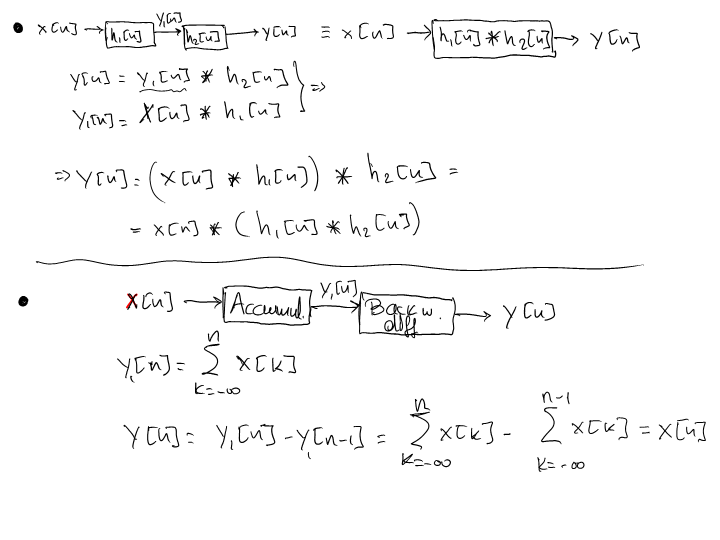 • x[n] → h₁[n] y₁[n] → h₂[n] → y[n] ≡ x[n] → h₁[n] * h₂[n] → y[n]
y[n] = y₁[n] * h₂[n] } ⇒
y₁[n] = x[n] * h₁[n]
⇒ y[n] = (x[n] * h₁[n]) * h₂[n] =
= x[n] * (h₁[n] * h₂[n])
• x[n] → Accumul. y₁[n] → Backw. diff → y[n]
y₁[n] = Σ_{k=-∞}^{n} x[k]
y[n] = y₁[n] - y₁[n-1] = Σ_{k=-∞}^{n} x[k] - Σ_{k=-∞}^{n-1} x[k] = x[n]